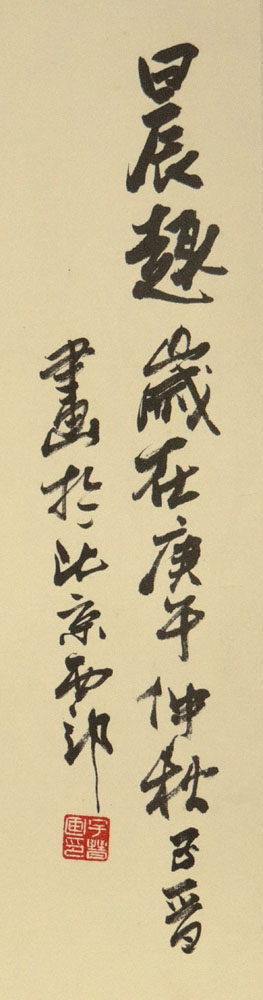 晨趣 歲在庚午仲秋子晋
畫於北京西郊
子晋
画印